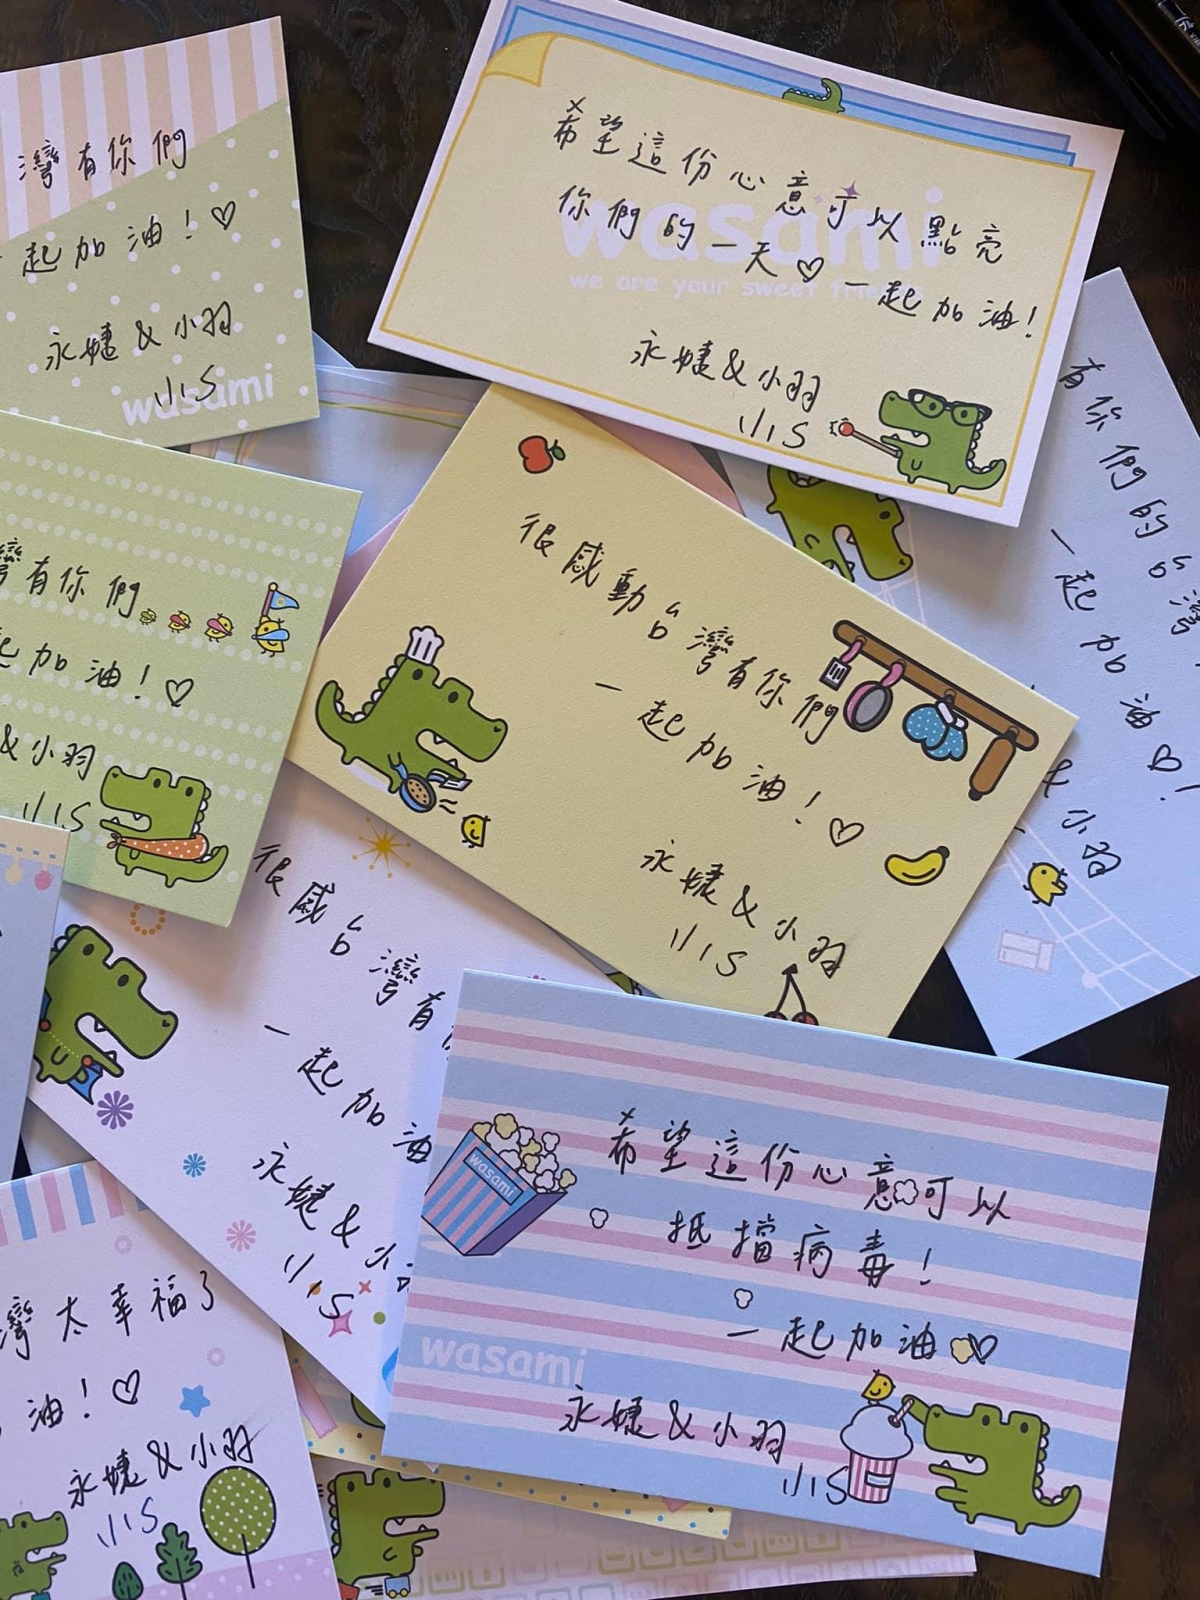 灣有你們
一起加油！♡
永婕&小羽
wasami
希望這份心意可以點亮
你們的一天♡一起加油！
永婕&小羽
wasami
we are your sweet friends
有你們的台灣
一起加油♡！
小羽
灣有你們
起加油！♡
&小羽
很感動台灣有你們
一起加油！♡
永婕&小羽
很感台灣有
一起加油
永婕&小
灣太幸福了
油！♡
永婕&小羽
希望這份心意可以
抵擋病毒！
一起加油♡
永婕&小羽
wasami
wasami